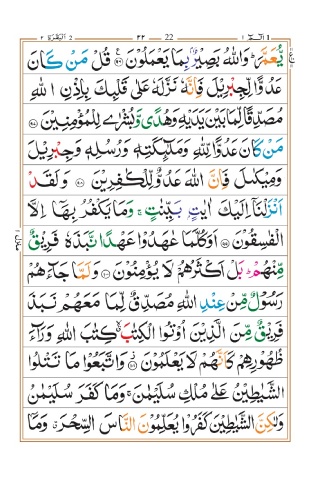 الٓمّٓ ١ 22 ٢٢ اَلْبَقَرَة ٢
يُّعَمَّرَ ؕ وَاللّٰهُ بَصِيْرٌۢ بِمَا يَعْمَلُوْنَ ﴿۹۶﴾ قُلْ مَنْ كَانَ
عَدُوًّا لِّجِبْرِيْلَ فَاِنَّهٗ نَزَّلَهٗ عَلٰى قَلْبِكَ بِاِذْنِ اللّٰهِ
مُصَدِّقًا لِّمَا بَيْنَ يَدَيْهِ وَهُدًى وَّبُشْرٰى لِلْمُؤْمِنِيْنَ ﴿۹۷﴾
مَنْ كَانَ عَدُوًّا لِّلّٰهِ وَمَلٰٓئِكَتِهٖ وَرُسُلِهٖ وَجِبْرِيْلَ
وَمِيْكٰىلَ فَاِنَّ اللّٰهَ عَدُوٌّ لِّلْكٰفِرِيْنَ ﴿۹۸﴾ وَلَقَدْ
اَنْزَلْنَاۤ اِلَيْكَ اٰيٰتٍۭ بَيِّنٰتٍ ۚ وَمَا يَكْفُرُ بِهَاۤ اِلَّا
الْفٰسِقُوْنَ ﴿۹۹﴾ اَوَكُلَّمَا عٰهَدُوْا عَهْدًا نَّبَذَهٗ فَرِيْقٌ
مِّنْهُمْ ؕ بَلْ اَكْثَرُهُمْ لَا يُؤْمِنُوْنَ ﴿۱۰۰﴾ وَلَمَّا جَآءَهُمْ
رَسُوْلٌ مِّنْ عِنْدِ اللّٰهِ مُصَدِّقٌ لِّمَا مَعَهُمْ نَبَذَ
فَرِيْقٌ مِّنَ الَّذِيْنَ اُوْتُوا الْكِتٰبَ ۙ كِتٰبَ اللّٰهِ وَرَآءَ
ظُهُوْرِهِمْ كَاَنَّهُمْ لَا يَعْلَمُوْنَ ﴿۱۰۱﴾ وَاتَّبَعُوْا مَا تَتْلُوا
الشَّيٰطِيْنُ عَلٰى مُلْكِ سُلَيْمٰنَ ۚ وَمَا كَفَرَ سُلَيْمٰنُ
وَلٰكِنَّ الشَّيٰطِيْنَ كَفَرُوْا يُعَلِّمُوْنَ النَّاسَ السِّحْرَ ۗ وَمَاۤ